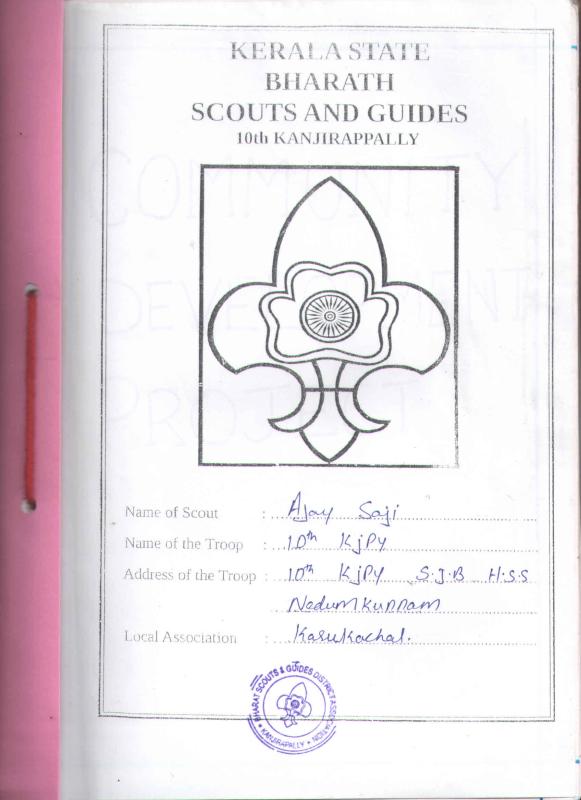 KERALA STATE
BHARATH
SCOUTS AND GUIDES
10th KANJIRAPPALLY
COMMUNITY
DEVELOPMENT
PROJECT
Name of Scout : Ajay Saji
Name of the Troop : 10th KjPY
Address of the Troop : 10th KjPY S.J.B H.S.S
Nedumkunnam
Local Association : Karukachal.
BHARAT SCOUTS & GUIDES DISTRICT ASSOCIATION
KANJIRAPALLY